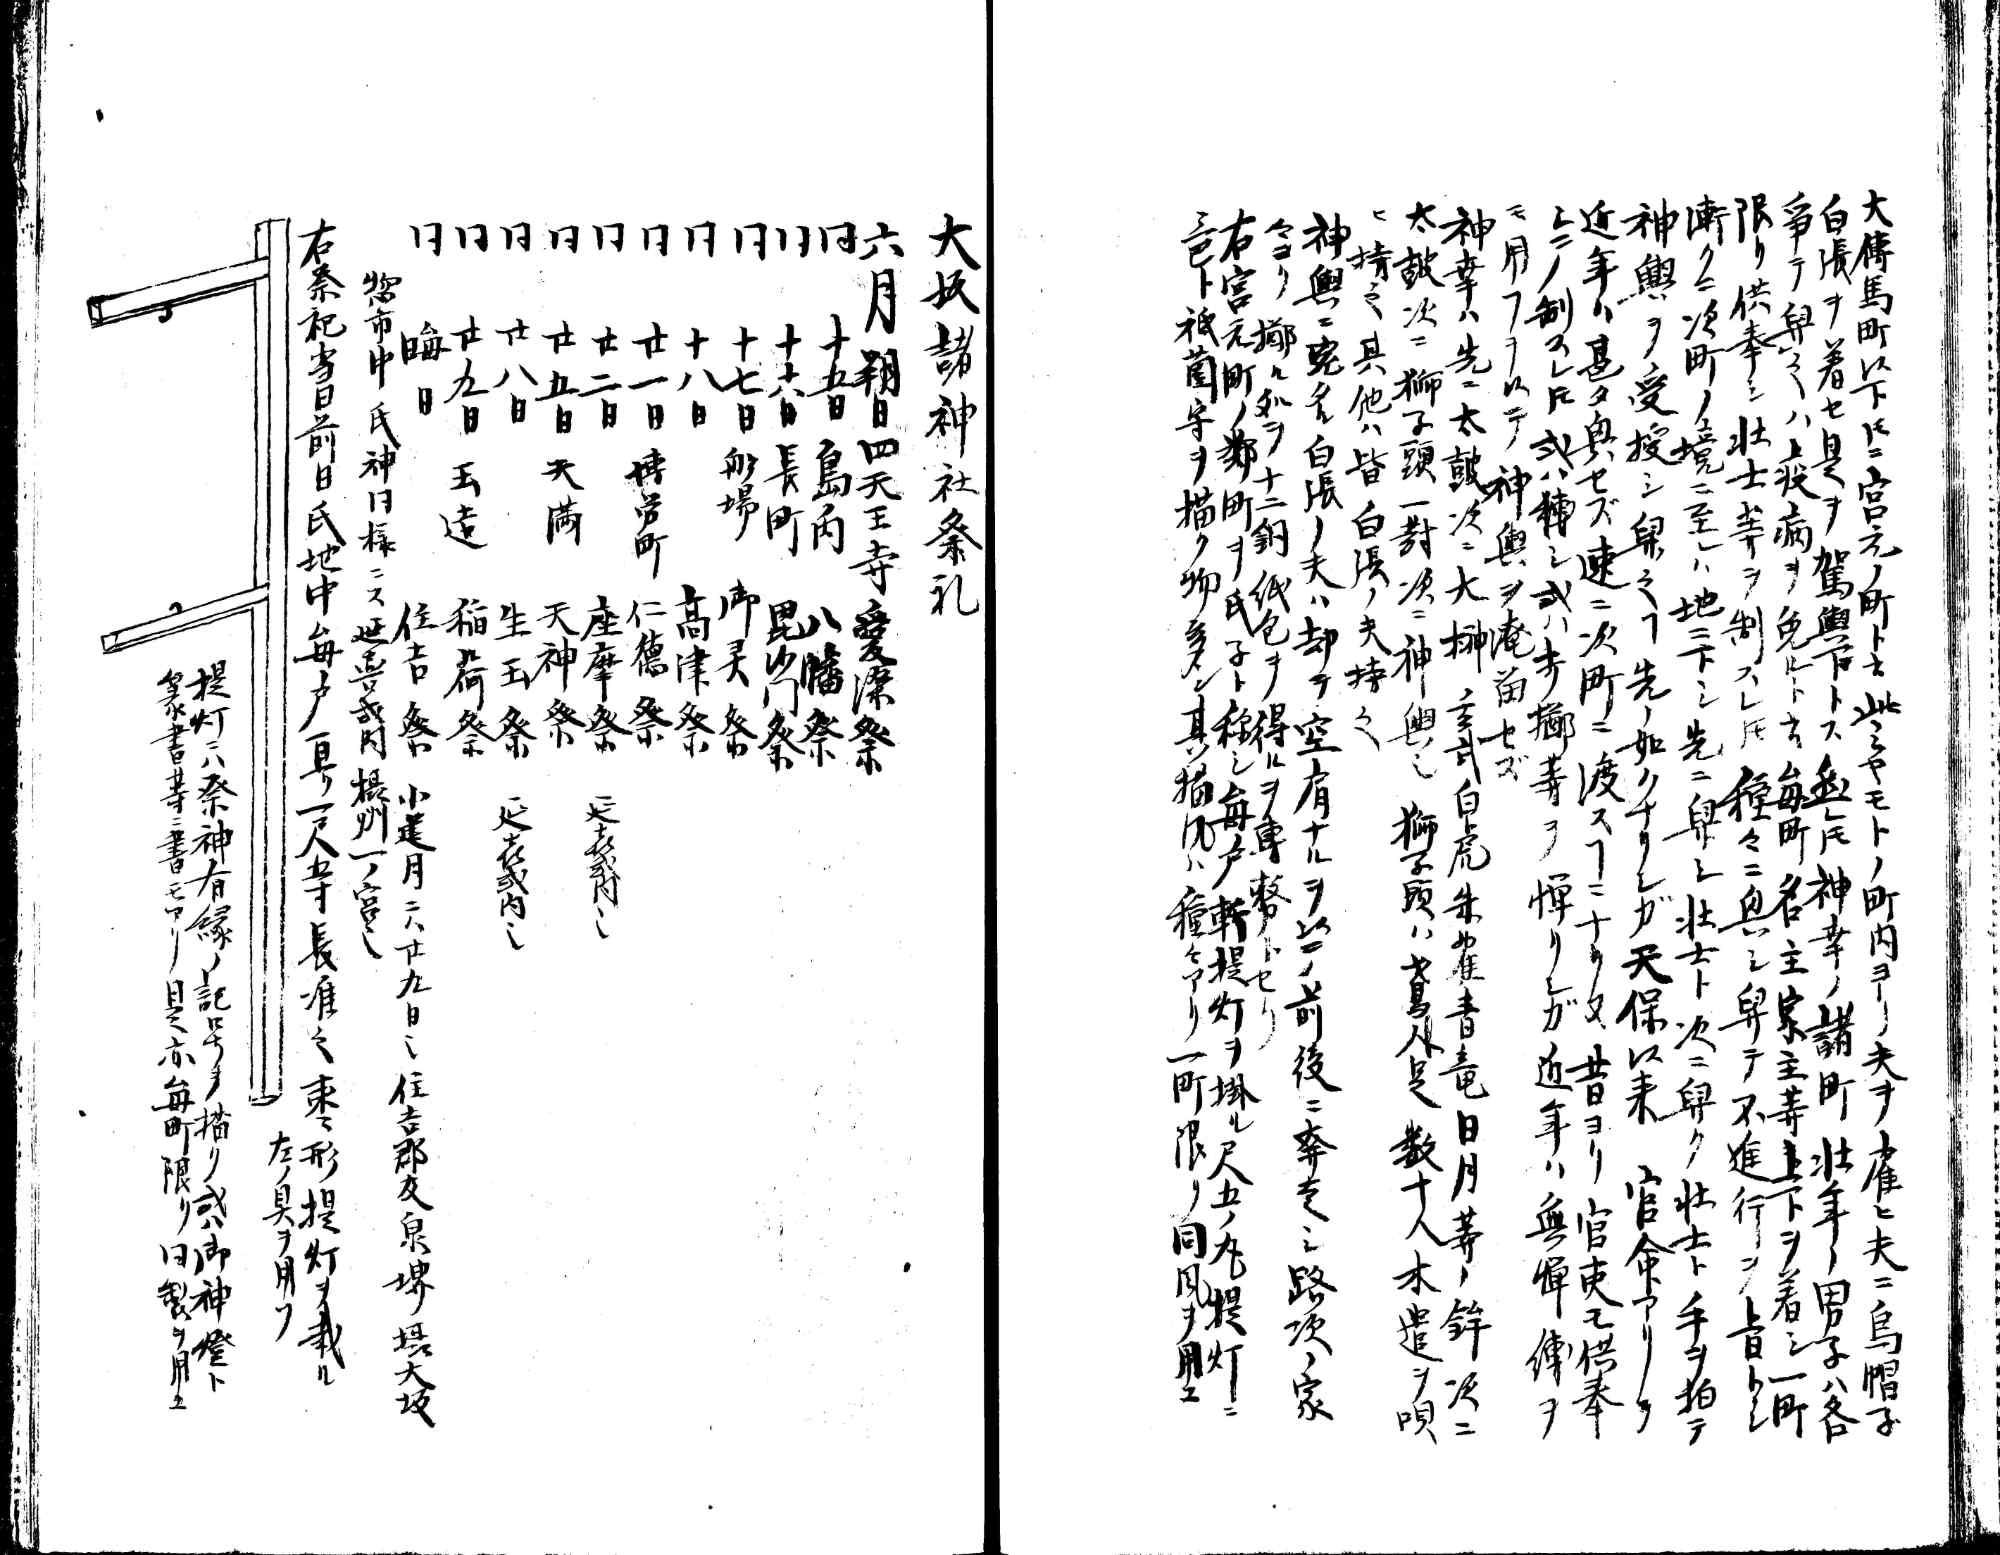 大傳馬町以下ﾄﾓニ宮元ノ町ト云此ミヤモトノ町内ヨリ夫ヲ雇ヒ夫ニ烏帽子
白張ヲ着セ是ヲ駕輿丁トス然レﾄﾓ神幸ノ諸町壮年ノ男子ハ各
爭テ舁之ハ上疫病ヲ免ルト云毎町名主家主等上下ヲ着シ一町
限リ供奉シ壮士等ヲ制スレﾄﾓ種々ニ興シ舁テ不進行ヲ旨トシ
漸クニ次町ノ境ニ至レハ地ニ下シ先ニ舁シ壮士ト次ニ舁ク壮士ト手ヲ拍テ
神輿ヲ受授シ舁之ヿ先ノ如クナリシガ天保以来　官命アリテ
近年ハ甚タ興セズ速ニ次町ニ渡スヿニナリタリ昔ヨリ官吏モ供奉
シ之ヲ制スレﾄﾓ或ハ轉シ或ハ歩擲等ヲ憚リシガ近年ハ無憚縛ヲ
モ用フヲ以テ神輿ヲ淹留セズ
神幸ハ先ニ太鼓次ニ大榊玄武白虎朱雀青竜日月等ノ鉾次ニ
太鼓次ニ獅子頭一對次ニ神輿也獅子頭ハ鳶人足数十人木遣ヲ唄
ヒ持之其他ハ皆白張ノ夫持之
神輿ニ庬名白張ノ夫ハ却テ空有ナルヲ以ニノ前後ニ奔走シ路次ノ家
々ヨリ擲ル処ヲ十二銅紙包ヲ得ルヲ專務トセリ
右宮元町ノ鄰町ヲ氏子ト称シ毎戸軒提灯ヲ掛ル尺五ノ丸提灯ニ
三巴ト祇園守ヲ描ク物多シ其描風ハ種々アリ一町限リ同風ヲ用エ
大坂諸神社祭礼
六月朔日　四天王寺　愛染祭
同　十五日　島内　八幡祭
同　十六日　長町　毘沙門祭
同　十七日　船場　御灵祭
同　十八日　高津祭
同　廿一日　博労町　仁徳祭
同　廿二日　座摩祭　延喜式内也
同　廿五日　天満　天神祭
同　廿八日　生玉祭　延喜式内也
同　廿九日　玉造　稲荷祭
同　晦日　住吉祭　小建月ニハ廿九日也住吉郡及泉堺堺大坂
惣市中氏神同様ニス延喜式内攝州一ノ宮也
右祭祀当日前日氏地中毎戸亘リ一尺五寸長准之棗形提灯ヲ載ル
左ノ具ヲ用フ
提灯ニハ祭神有縁ノ記号ヲ描リ或ハ御神燈ト
篆書等ニ書モアリ是亦毎町限リ同製ヲ用エ